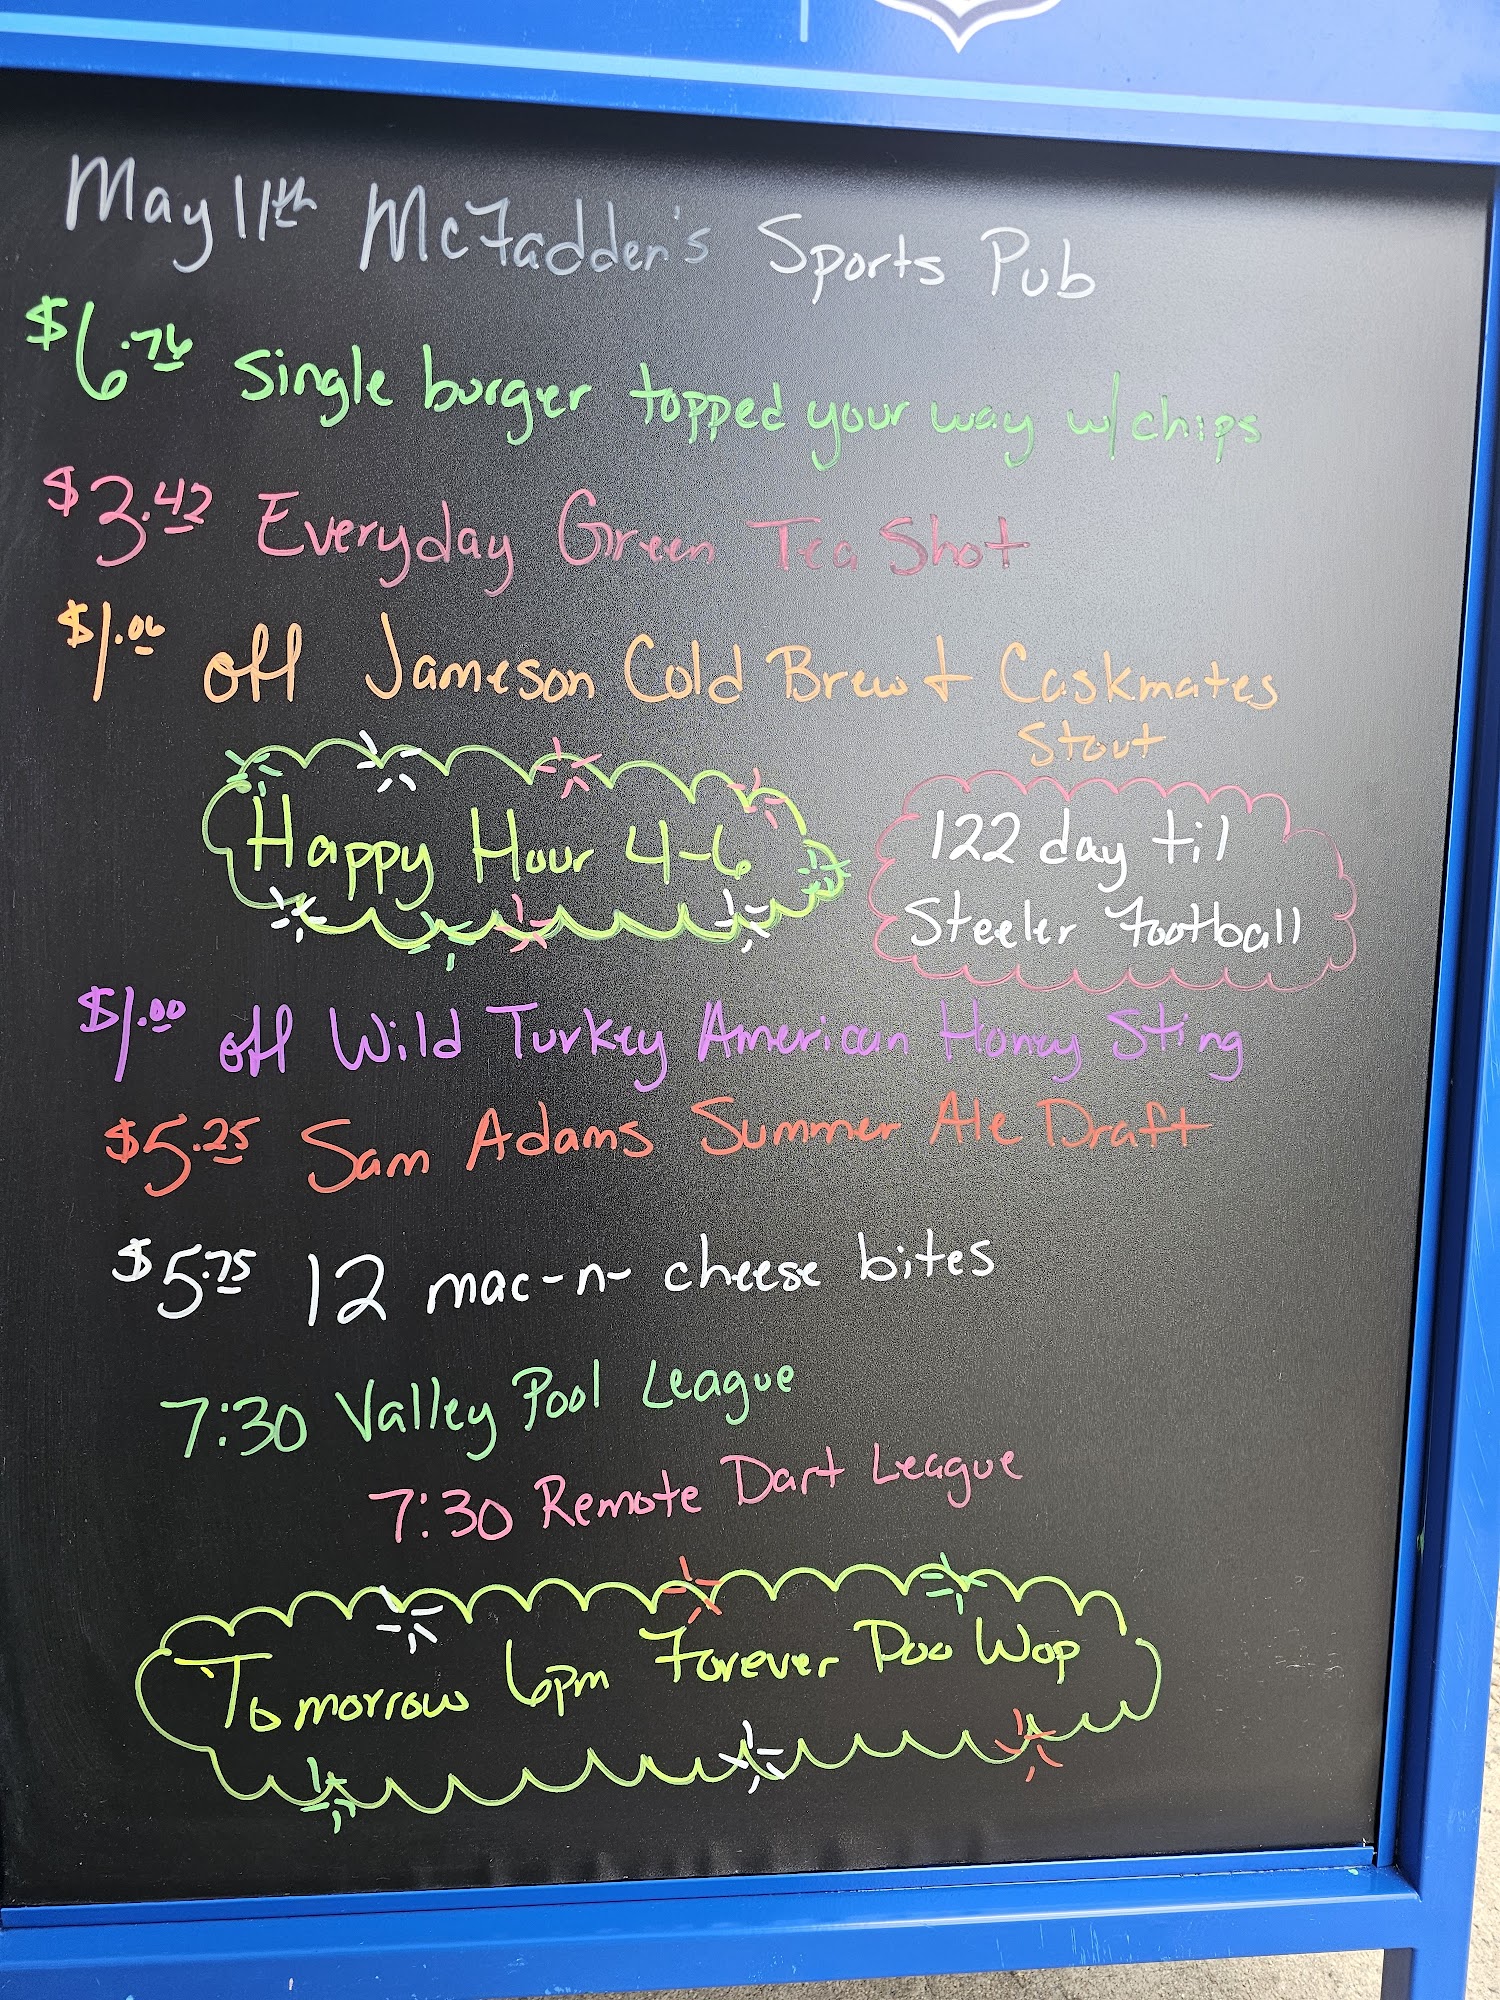 May 11th McFadden's Sports Pub
$6.76 Single burger topped your way w/chips
$3.42 Everyday Green Tea Shot
$1.06 off Jameson Cold Brew + Caskmates
Stout
Happy Hour 4-6
122 day til
Steeler Football
$1.00 off Wild Turkey American Honey Sting
$5.25 Sam Adams Summer Ale Draft
$5.75 12 mac-n-cheese bites
7:30 Valley Pool League
7:30 Remote Dart League
Tomorrow 6pm Forever Doo Wop